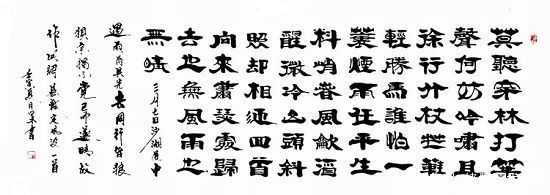 莫聽穿林打葉
聲何妨吟嘯且
徐行竹杖芒鞋
輕勝馬誰怕一
蓑煙雨任平生
料峭春風吹酒
醒微冷山頭斜
照却相迎回首
向來蕭瑟處歸
去也無風雨也
無晴 三月七日沙湖道中
遇雨雨具先去同行皆狼
狽余獨不覺已而遂晴故
作此詞 蘇軾定風波一首
日 書